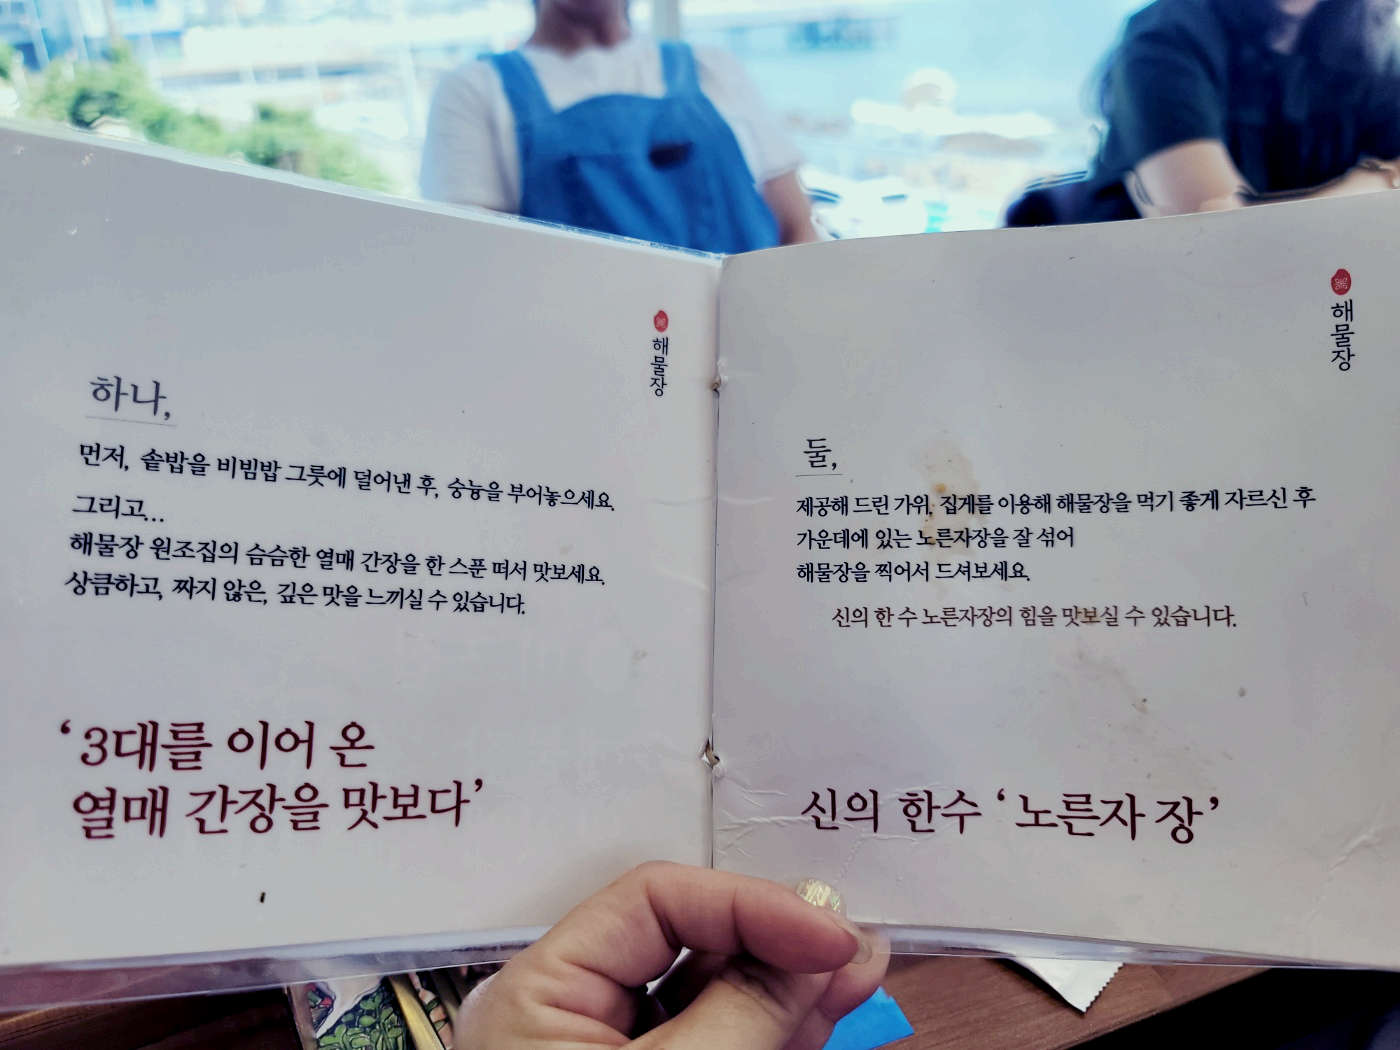 해물장
하나,
먼저, 솥밥을 비빔밥 그릇에 덜어낸 후, 숭늉을 부어놓으세요.
그리고...
해물장 원조집의 슴슴한 열매 간장을 한 스푼 떠서 맛보세요.
상큼하고, 짜지 않은, 깊은 맛을 느끼실 수 있습니다.
‘3대를 이어 온
열매 간장을 맛보다’
해물장
둘,
제공해 드린 가위, 집게를 이용해 해물장을 먹기 좋게 자르신 후
가운데에 있는 노른자장을 잘 섞어
해물장을 찍어서 드셔보세요.
신의 한 수 노른자장의 힘을 맛보실 수 있습니다.
신의 한수 ‘노른자 장’